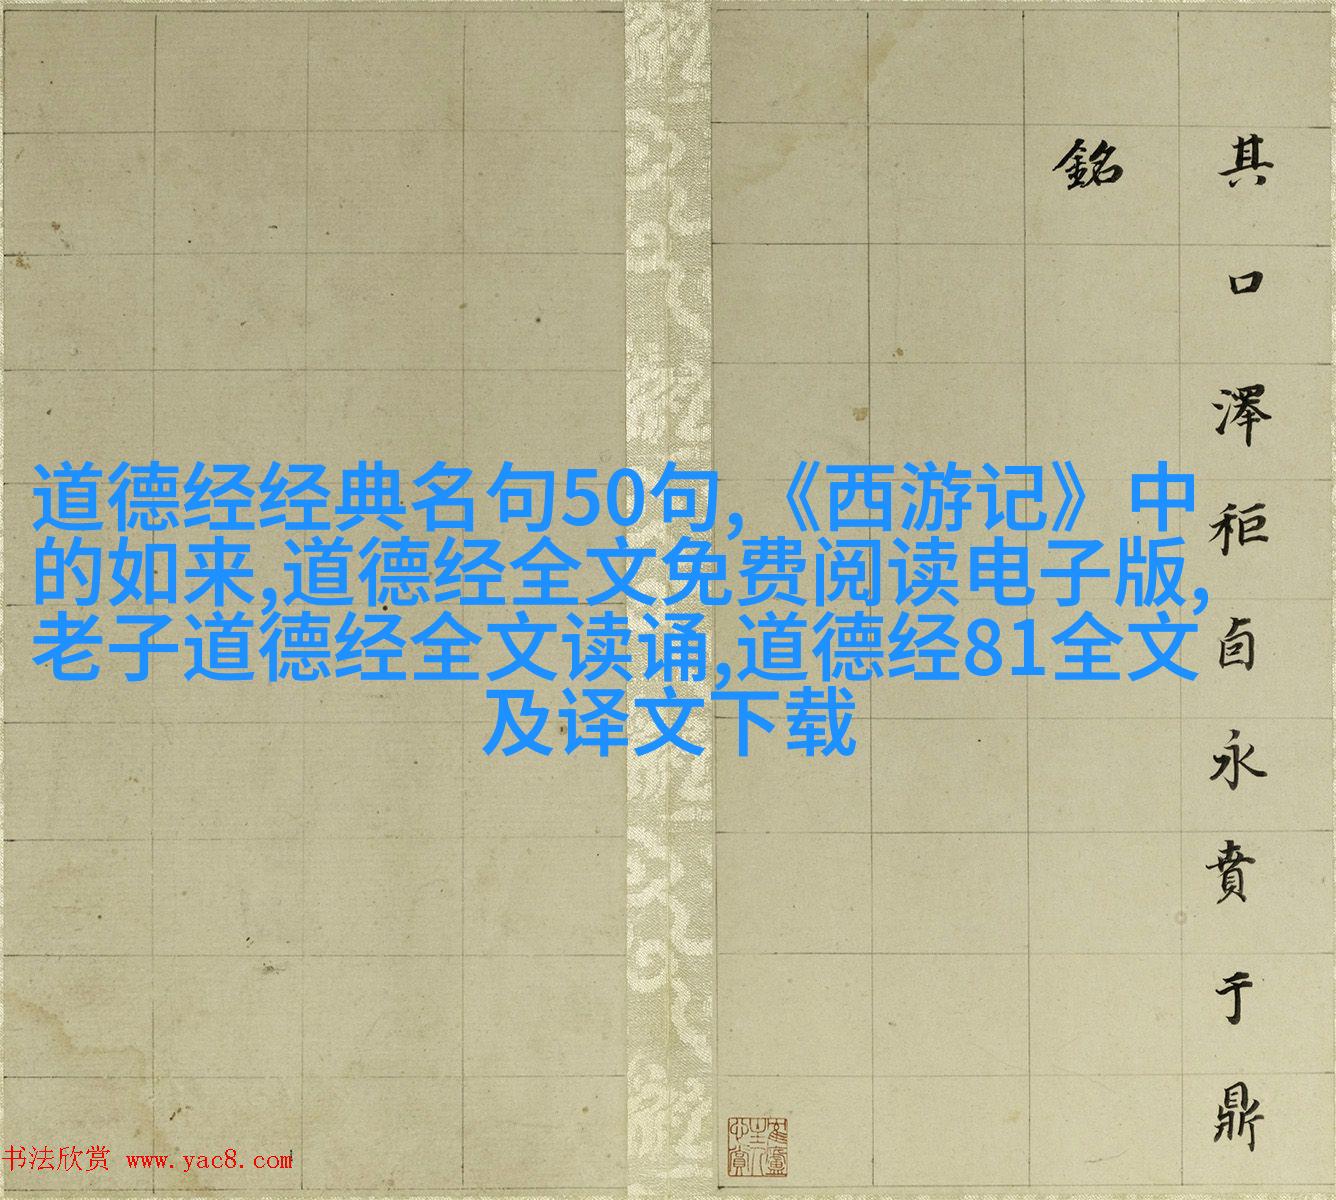 其口澤秬卣永賁于鼎
銘
道德经经典名句50句,《西游记》中
的如来,道德经全文免费阅读电子版,
老子道德经全文读诵,道德经81全文
及译文下载
书法欣赏 www.yac8.com